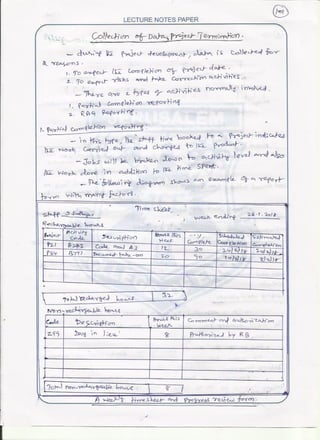 LECTURE NOTES PAPER
Collection of Data, Project Termination.
- during the Project development, data is collected for
2 reasons.
1. To expect the completion of Project date.
2. To expect risks and take correction activities.
- There are 2 types of activities normally involved.
1. Partial completion reporting
2. RAG Reporting.
1. Partial completion reporting
- in this type, the staff time booked to a Project indicates
the work carried out and charges to the product.
- Jobs will be broken down to activity level and also
the work done in addition to the time spent.
- The following diagram shows an example of a report
form with many factors.
Time Sheet
Staff
week ending 28.1.2018
Rechargeable hours
Project
Activity Code
Description
Hours this week
Complete
Scheduled Completion
Estimated Completion
P21
Code mod A3
12
30
20
90
Total Recharged hours
32
Non-rechargeable hours
Code
Description
Hours this week
Comment and authorization
Z99
Day in lieu
8
Authorised by RB
Total non-rechargeable hours
8
A week's timesheet and Progress review form.